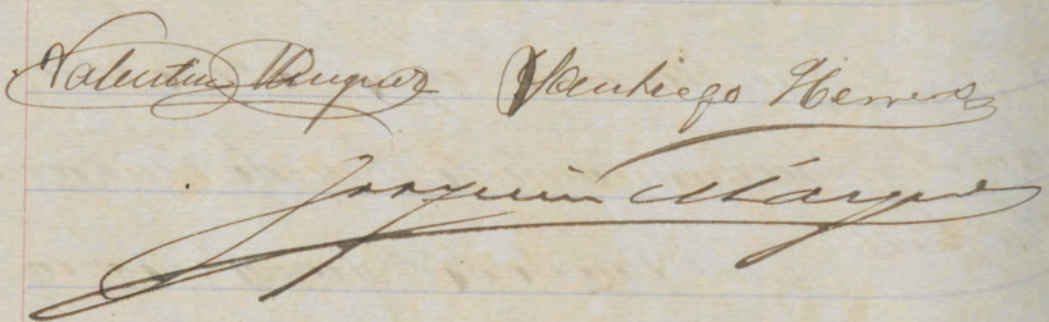 Valentin Santiago Herrera
Joaquin Márquez